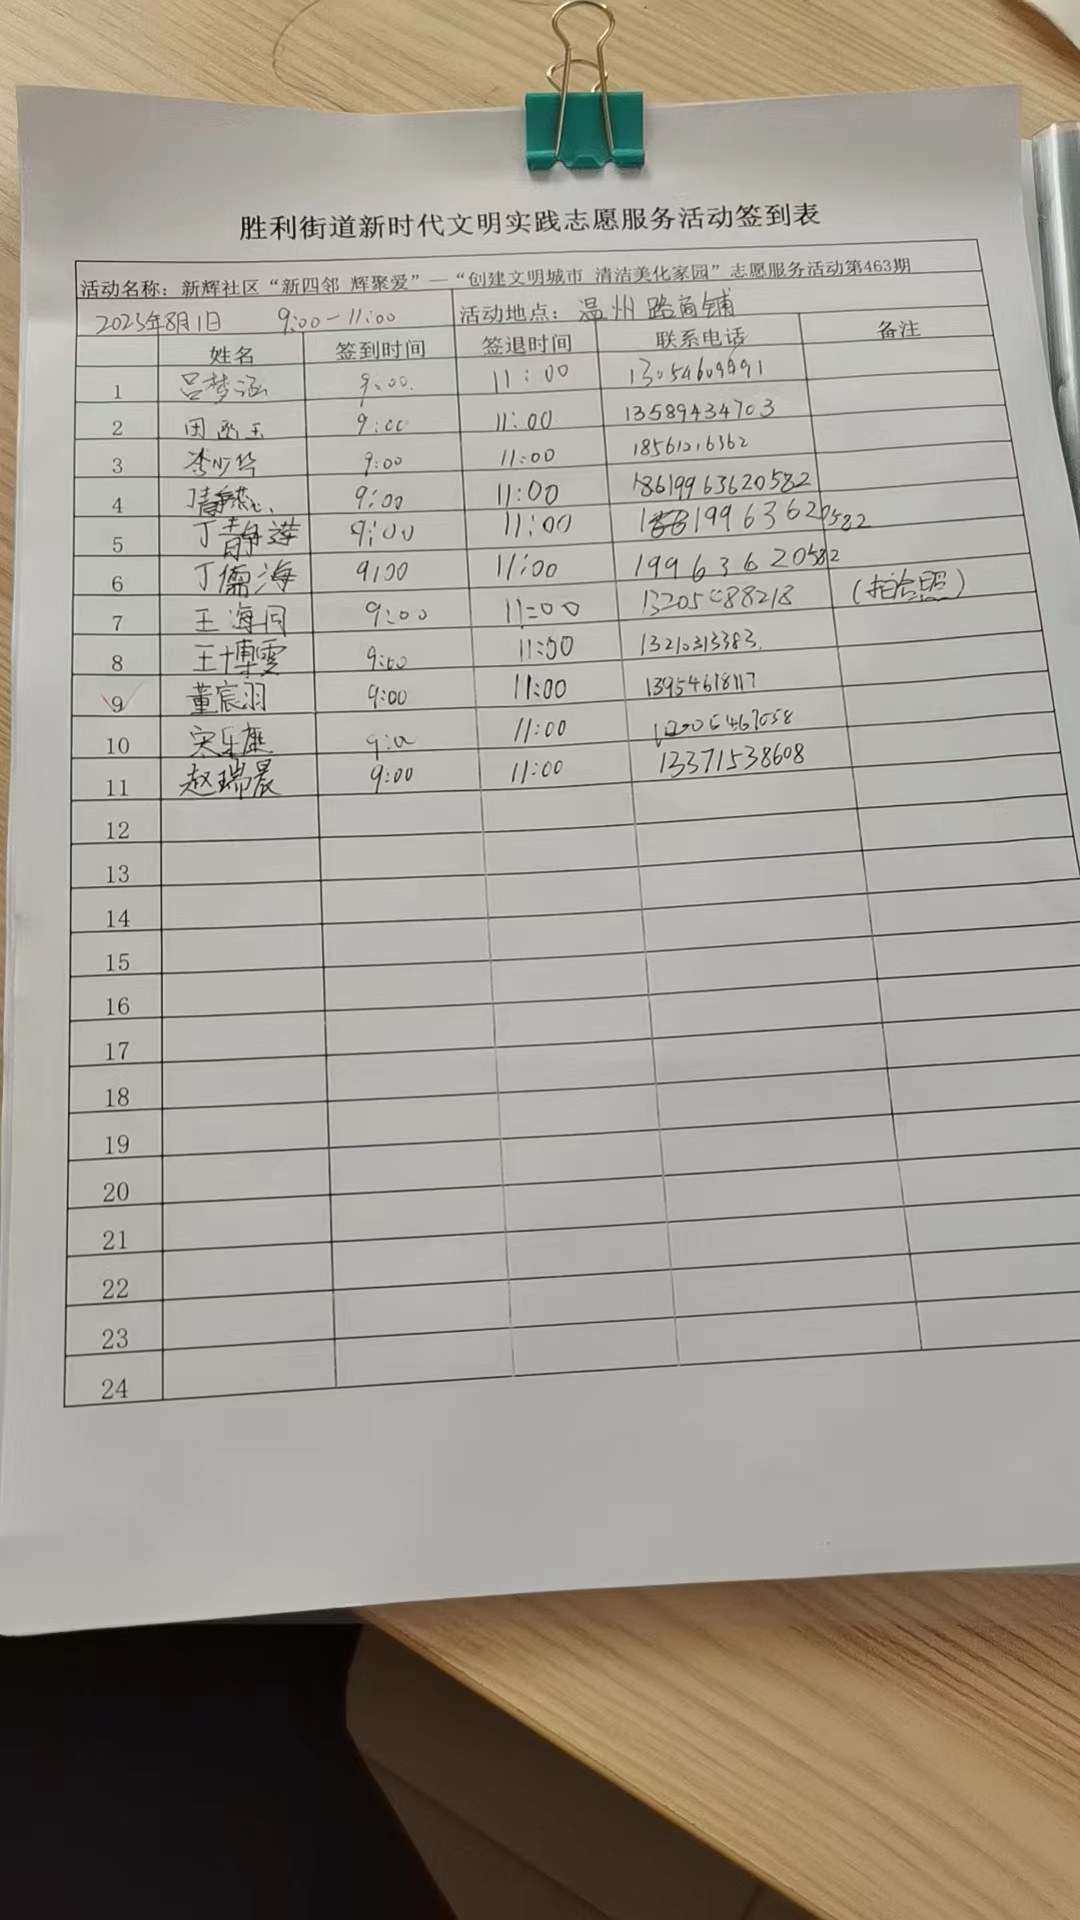 胜利街道新时代文明实践志愿服务活动签到表
活动名称：新辉社区“新四邻 辉聚爱”—“创建文明城市 清洁美化家园”志愿服务活动第463期
2025年8月1日 9:00-11:00 活动地点：温州路商铺
姓名 签到时间 签退时间 联系电话 备注
1 吕梦涵 9:00. 11:00
2 9:00 11:00 13589434703
3 李少华 9:00 11:00
4 9:00 11:00 18619963620582
5 丁静莲 9:00 11:00
6 丁儒海 9:00 11:00 19963620582
7 王海同 9:00 11:00 (拍合照)
8 王博雯 9:00 11:00 13210313383.
9 董宸羽 9:00 11:00 13954618117
10 宋乐 11:00
11 赵瑞晨 9:00 11:00 13371538608
12
13
14
15
16
17
18
19
20
21
22
23
24